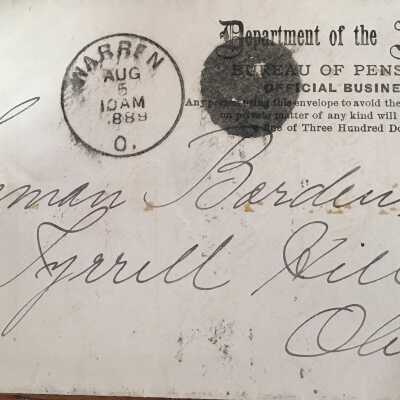 WARREN
AUG
5
10AM
1889
O.
Department of the
BUREAU OF PENS
OFFICIAL BUSINE
Any person using this envelope to avoid the
on private matter of any kind will
fine of Three Hundred Do
man Borden
Tyrrell Hill
O